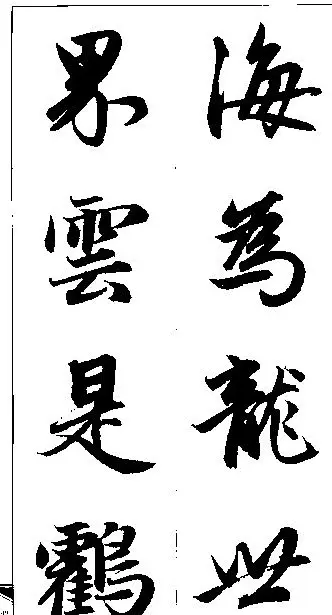 海為龍世
界雲是鸖